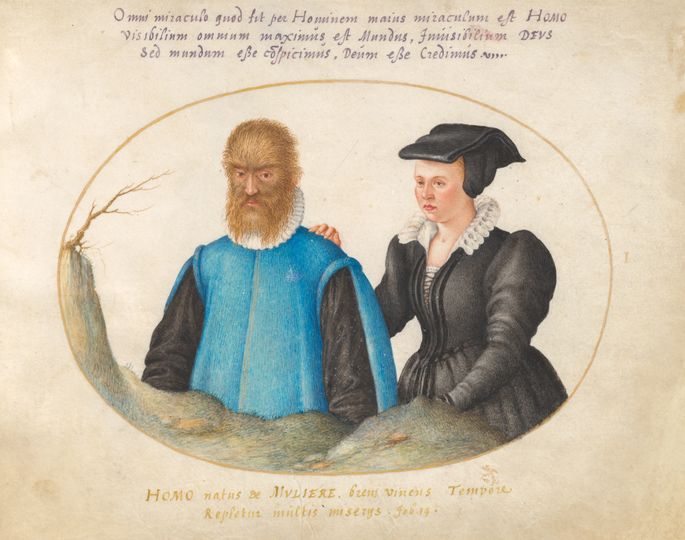 Omni miraculo quod fit per Hominem maius miraculum est HOMO
Visibilium omnium maximus est Mundus, Invisibilium DEVS
Sed mundum eße cōspicimus, Deum eße Credimus
I
HOMO natus de MVLIERE. breui viuens Tempore
Repletur multis miserys. Job. 14.